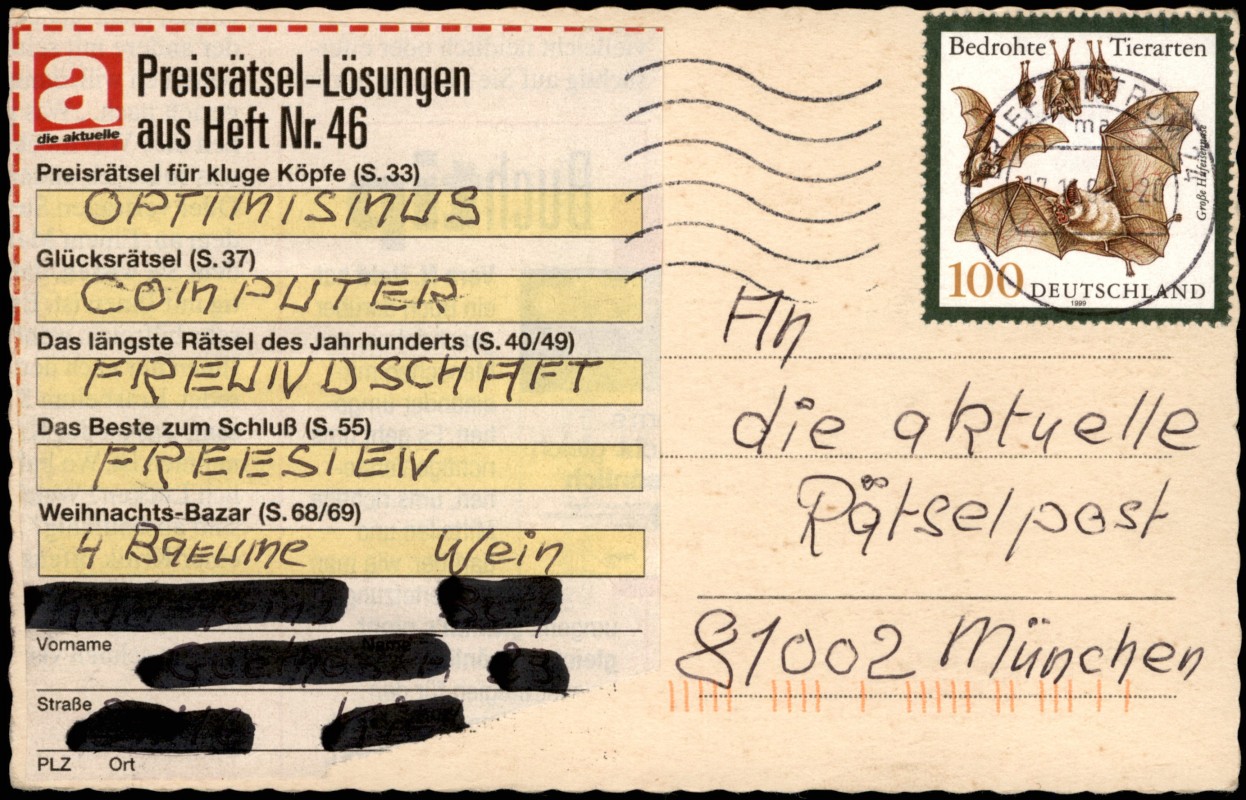 a
die aktuelle
Preisrätsel-Lösungen
aus Heft Nr. 46
Preisrätsel für kluge Köpfe (S. 33)
OPTIMISMUS
Glücksrätsel (S. 37)
COMPUTER
Das längste Rätsel des Jahrhunderts (S. 40/49)
FREUNDSCHAFT
Das Beste zum Schluß (S. 55)
FREESIEN
Weihnachts-Bazar (S. 68/69)
4 BaEUme Wein
Vorname Name
Straße
PLZ Ort
Bedrohte Tierarten
Große Hufeisennase
100 DEUTSCHLAND
1999
An
die aktuelle
Rätselpost
81002 München